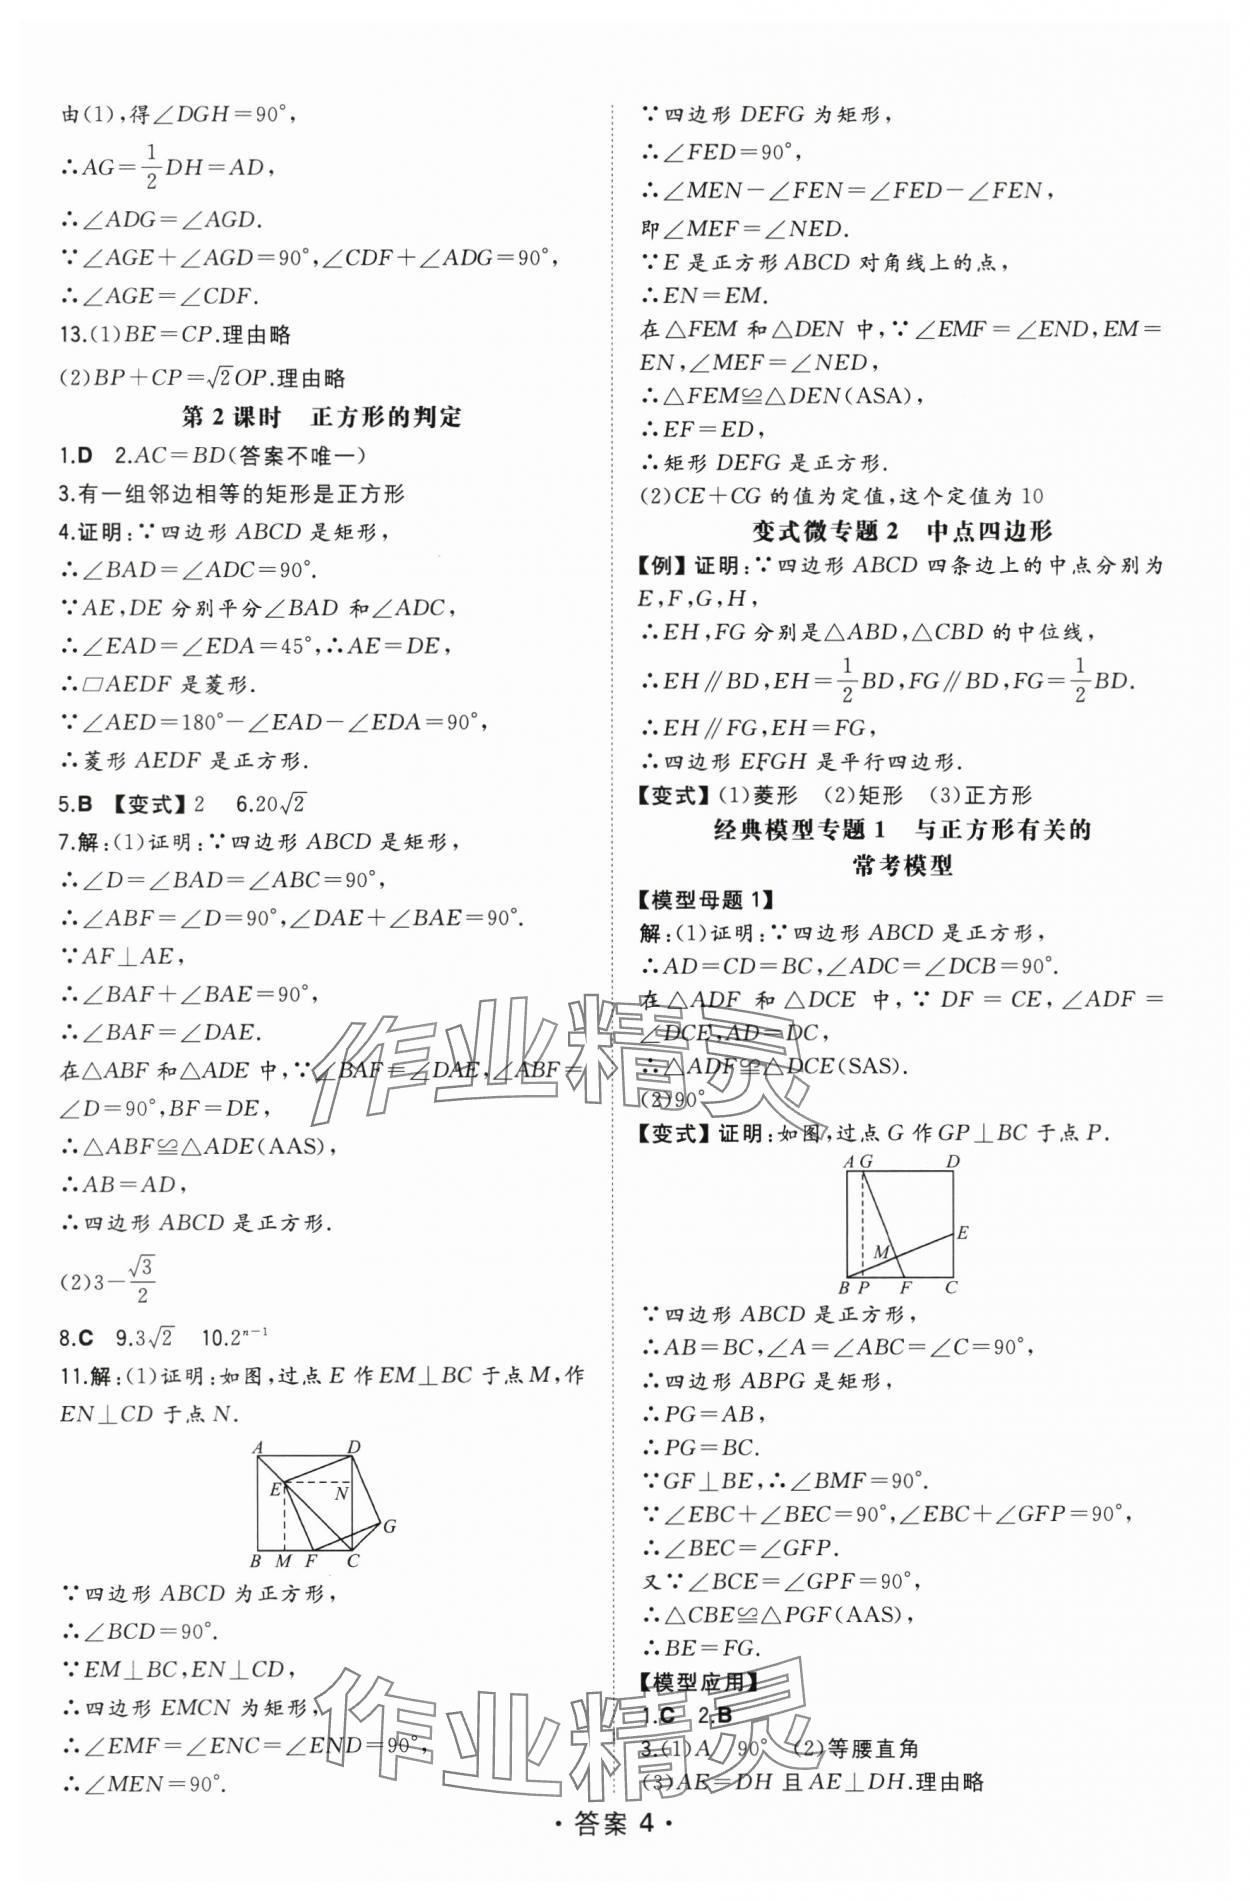 由(1),得∠DGH=90°,
∴AG=1/2DH=AD,
∴∠ADG=∠AGD.
∵∠AGE+∠AGD=90°,∠CDF+∠ADG=90°,
∴∠AGE=∠CDF.
13.(1)BE=CP.理由略
(2)BP+CP=√2OP.理由略
第2课时 正方形的判定
1.D 2.AC=BD(答案不唯一)
3.有一组邻边相等的矩形是正方形
4.证明:∵四边形ABCD是矩形,
∴∠BAD=∠ADC=90°.
∵AE,DE分别平分∠BAD和∠ADC,
∴∠EAD=∠EDA=45°,∴AE=DE,
∴▱AEDF是菱形.
∵∠AED=180°-∠EAD-∠EDA=90°,
∴菱形AEDF是正方形.
5.B 【变式】2 6.20√2
7.解:(1)证明:∵四边形ABCD是矩形,
∴∠D=∠BAD=∠ABC=90°,
∴∠ABF=∠D=90°,∠DAE+∠BAE=90°.
∵AF⊥AE,
∴∠BAF+∠BAE=90°,
∴∠BAF=∠DAE.
在△ABF和△ADE中,∵∠BAF=∠DAE,∠ABF=
∠D=90°,BF=DE,
∴△ABF≌△ADE(AAS),
∴AB=AD,
∴四边形ABCD是正方形.
(2)3-√3/2
8.C 9.3√2 10.2ⁿ⁻¹
11.解:(1)证明:如图,过点E作EM⊥BC于点M,作
EN⊥CD于点N.
A D
E N
G
B M F C
∵四边形ABCD为正方形,
∴∠BCD=90°.
∵EM⊥BC,EN⊥CD,
∴四边形EMCN为矩形,
∴∠EMF=∠ENC=∠END=90°,
∴∠MEN=90°.
∵四边形DEFG为矩形,
∴∠FED=90°,
∴∠MEN-∠FEN=∠FED-∠FEN,
即∠MEF=∠NED.
∵E是正方形ABCD对角线上的点,
∴EN=EM.
在△FEM和△DEN中,∵∠EMF=∠END,EM=
EN,∠MEF=∠NED,
∴△FEM≌△DEN(ASA),
∴EF=ED,
∴矩形DEFG是正方形.
(2)CE+CG的值为定值,这个定值为10
变式微专题2 中点四边形
【例】证明:∵四边形ABCD四条边上的中点分别为
E,F,G,H,
∴EH,FG分别是△ABD,△CBD的中位线,
∴EH∥BD,EH=1/2BD,FG∥BD,FG=1/2BD.
∴EH∥FG,EH=FG,
∴四边形EFGH是平行四边形.
【变式】(1)菱形 (2)矩形 (3)正方形
经典模型专题1 与正方形有关的
常考模型
【模型母题1】
解:(1)证明:∵四边形ABCD是正方形,
∴AD=CD=BC,∠ADC=∠DCB=90°.
在△ADF和△DCE中,∵DF=CE,∠ADF=
∠DCE,AD=DC,
∴△ADF≌△DCE(SAS).
(2)90°
【变式】证明:如图,过点G作GP⊥BC于点P.
A G D
E
M
B P F C
∵四边形ABCD是正方形,
∴AB=BC,∠A=∠ABC=∠C=90°,
∴四边形ABPG是矩形,
∴PG=AB,
∴PG=BC.
∵GF⊥BE,∴∠BMF=90°.
∵∠EBC+∠BEC=90°,∠EBC+∠GFP=90°,
∴∠BEC=∠GFP.
又∵∠BCE=∠GPF=90°,
∴△CBE≌△PGF(AAS),
∴BE=FG.
【模型应用】
1.C 2.B
3.(1)A 90° (2)等腰直角
(3)AE=DH且AE⊥DH.理由略
作业精灵
作业精灵
·答案4·